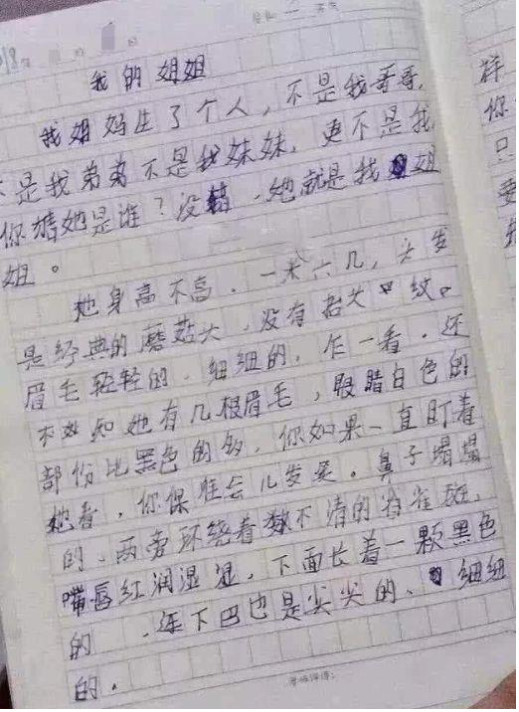 我的姐姐
我妈妈生了个人，不是我哥哥，
不是我弟弟不是我妹妹，更不是我
你猜她是谁？没错，她就是我姐
姐。
她身高不高，一米六几，头发
是经典的蘑菇头，没有抬头纹。
眉毛轻轻的，细细的，乍一看，还
不知她有几根眉毛，眼睛白色的
部份比黑色的多，你如果一直盯着
她看，你保准会儿发笑。鼻子塌塌
的，两旁环绕着数不清的雀斑，
嘴唇红润湿湿，下面长着一颗黑色
的，连下巴也是尖尖的、细细
的。
样
你
只
要